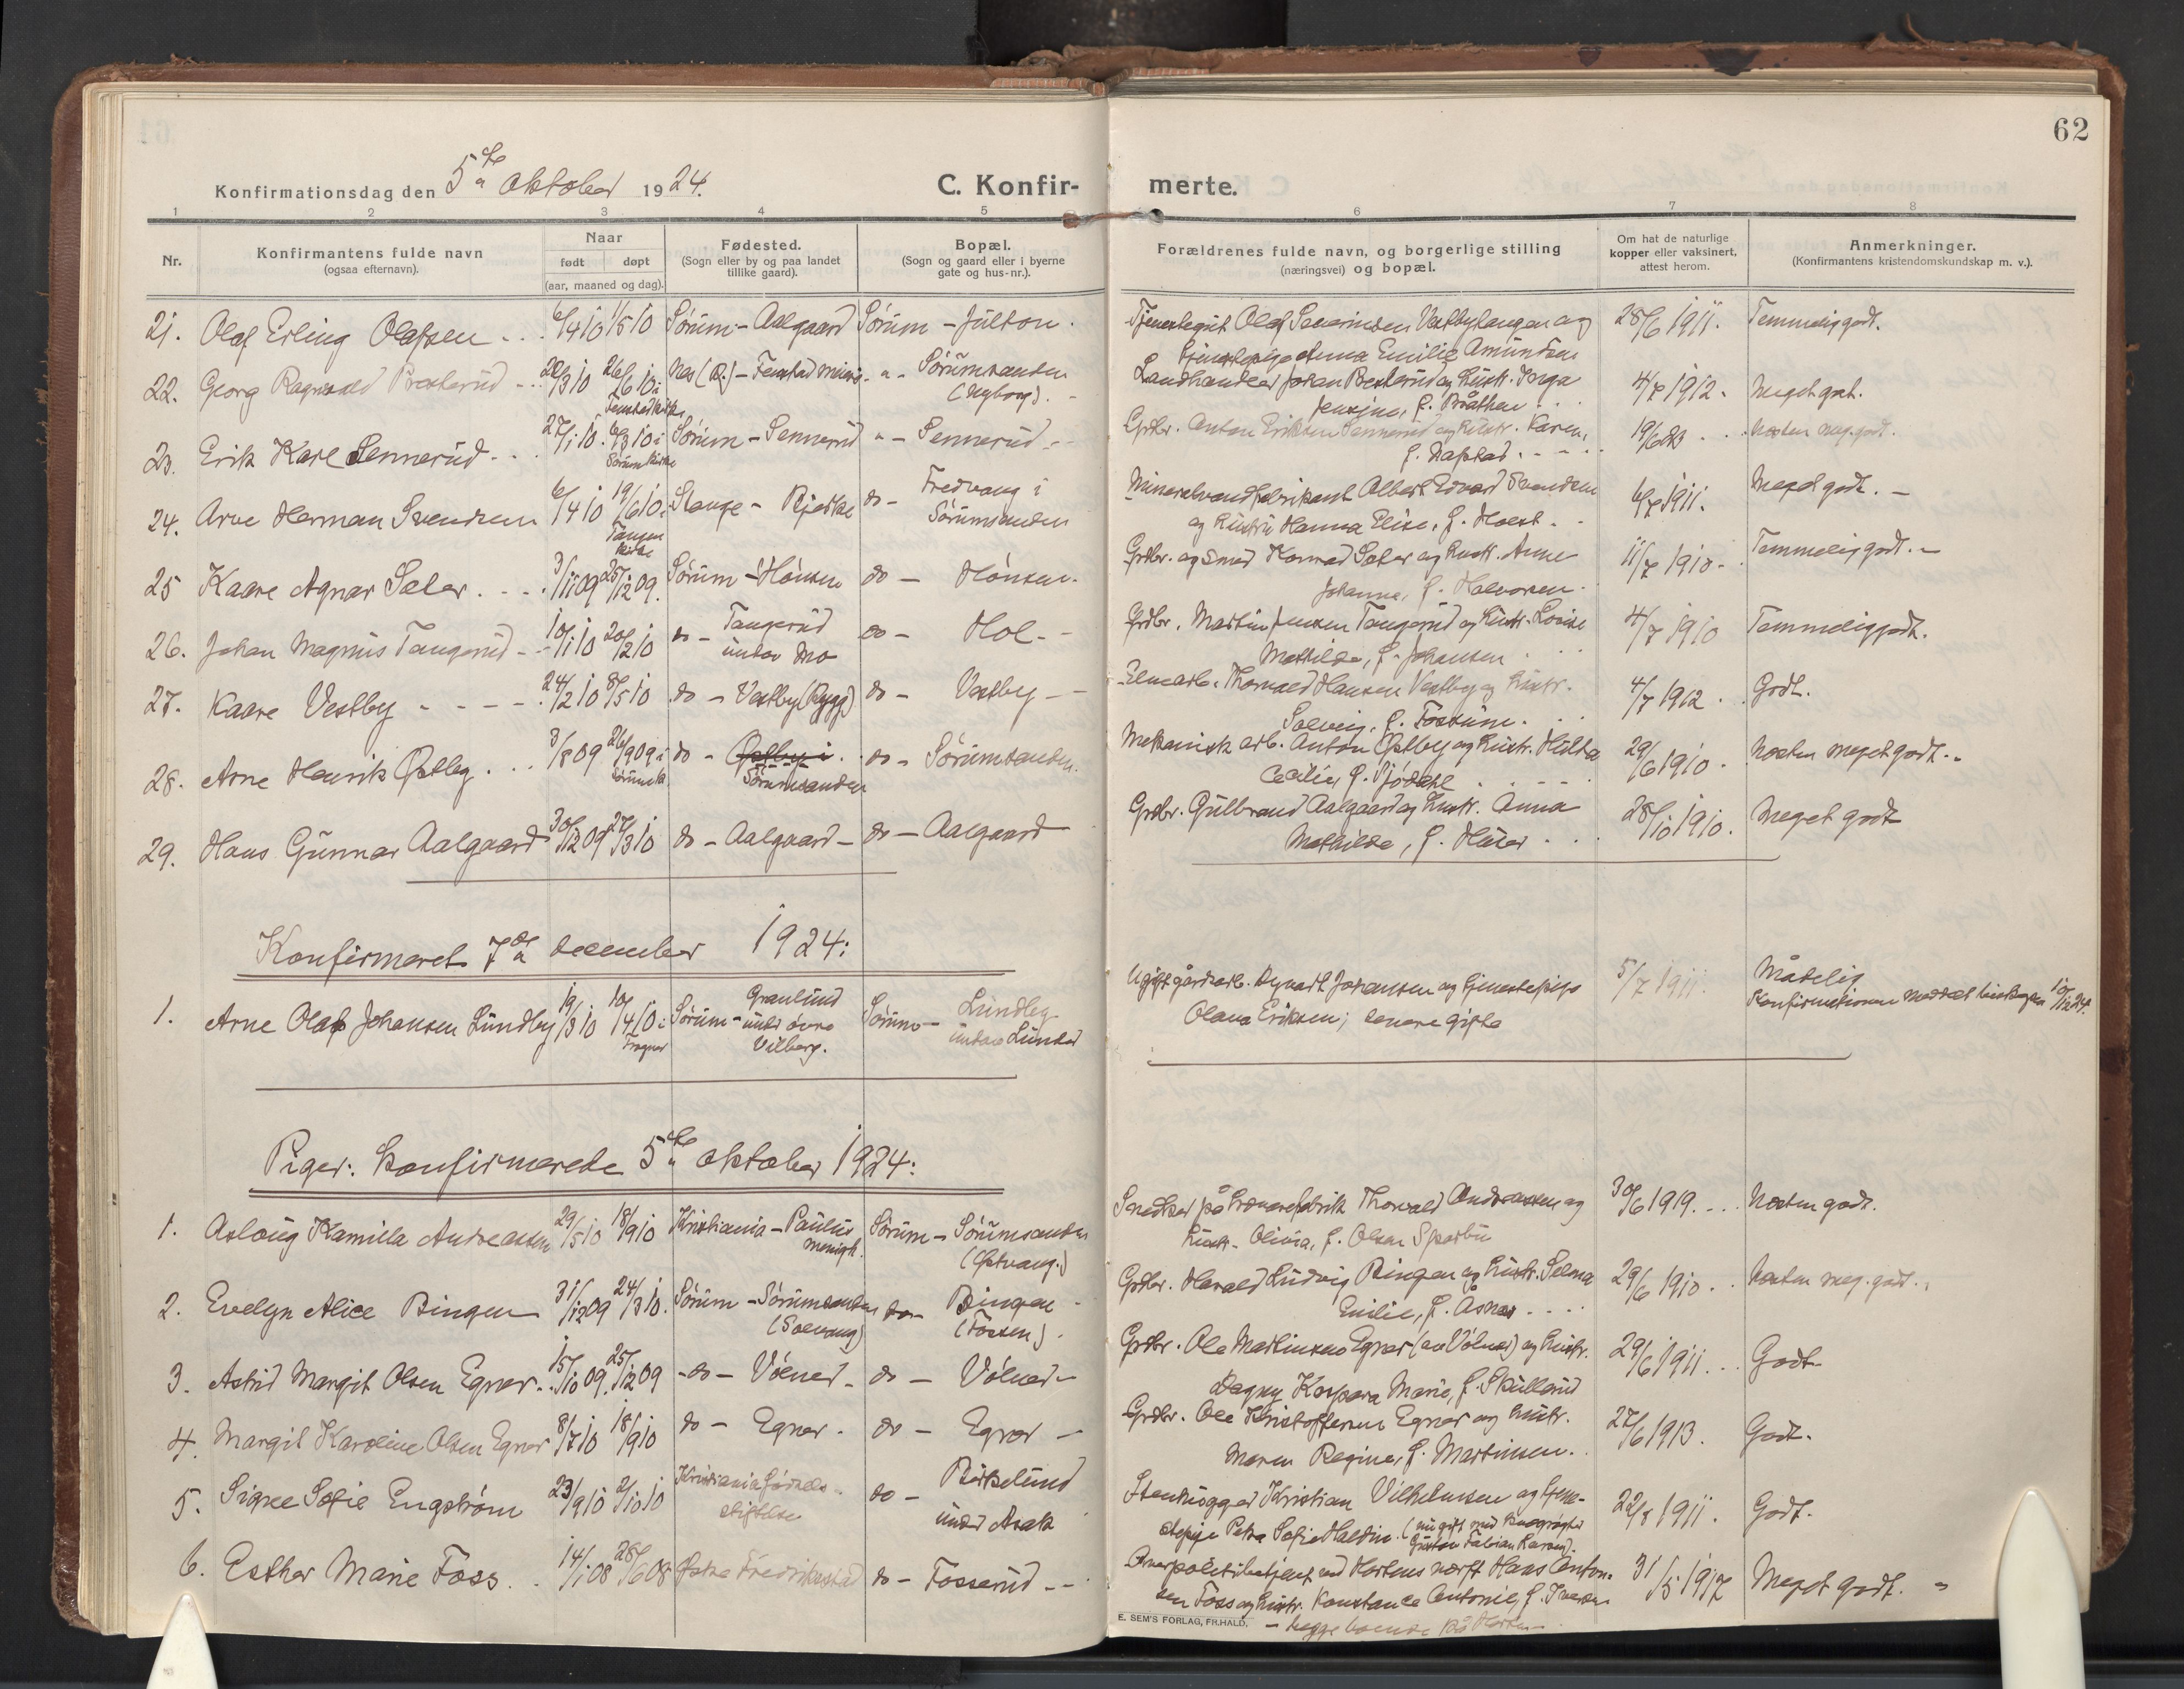 62
Konfirmationsdag den 5te oktober 1924.
C. Konfir-
merte.
1 2 3 4 5 6 7 8
Nr.
Konfirmantens fulde navn
(ogsaa efternavn).
Naar
født døpt
(aar, maaned og dag).
Fødested.
(Sogn eller by og paa landet
tillike gaard).
Bopæl.
(Sogn og gaard eller i byerne
gate og hus-nr.).
Forældrenes fulde navn, og borgerlige stilling
(næringsvei) og bopæl.
Om hat de naturlige
kopper eller vaksinert,
attest herom.
Anmerkninger.
(Konfirmantens kristendomskundskap m. v.).
21. Olaf Erling Olafsen 6/4 10 1/5 10 Sørum - Aalgaard Sørum - Jülton.
Tjenestegut Olaf Severinsen Vestbytangen og
tjenestepige Anna Emilie Amundsen
28/6 1911. Temmelig godt.
22. Georg Ragnvald 28/3 10 26/6 10 i Nes (R.) - Fenstad - " - Sørumsanden
Fenstad kirke (Nyborg).
Landhandler Johan og hustr. Inga
Jensine, f. Bråthen
4/7 1912. Meget godt.
23. Erik Kare Sennerud 27/1 10. 6/3 10 i Sørum - Sennerud " - Sennerud -
Sørum kirke
Grdbr. Anton Eriksen Sennerud og hustr. Karen,
f. Dapstad
19/6 23 Næsten meg. godt.
24. Arve Herman Svendsen 6/4 10 19/6 10 i Stange - do - Fredvang i
Tangen kirke Sørumsanden
Mineralvandfabrikant Albert Edvard Svendsen
og hustru Hanna Elise, f. Holst.
6/7 1911. Meget godt. -
25 Kaare Agnar Sæter 3/11 09 25/12 09. Sørum - Hönsen do - Hönsen.
Grdbr. og smed Konrad Sæter og hustr. Anne
Johanne, f. Halvorsen
11/7 1910 - Temmelig godt. -
26. Johan Magnus Tangerud 10/1 10 20/2 10 do - Tangerud
under Mo do - Hol. -
Grdbr. Martin Jensen Tangerud og hustr. Lovise
Mathilde, f. Johansen
4/7 1910 Temmelig godt.
27. Kaare Vestby 24/2 10 8/5 10 do - Vestby (Rygg) do - Vestby -
Elvearb. Thorvald Hansen Vestby og hustr.
Solveig, f. Fossum.
4/7 1912. Godt.
28. Arne Henrik Østby 3/8 09 26/9 09 i do - Østby i do - Sørumsanden.
Sørum k. Sørumsanden
Mekanisk arb. Anton Østby og hustr. Hulda
Cecilie, f. Sjödahl
29/6 1910. Næsten meget godt.
29. Hans Gunnar Aalgaard 30/12 09 27/3 10 do - Aalgaard - do - Aalgaard
Grdbr. Gulbrand Aalgaard og hustr. Anna
Mathilde, f. Huser
28/10 1910. Meget godt
Konfirmeret 7de december 1924:
1. Arne Olaf Johansen Lundby 19/3 10 10/4 10 i Sørum - Granlund
under övre
Vilberg. Sørum - Lundby
under Lunder
Frogner
Ugift gårdsarb. Johansen og tjenestepige
Olava Eriksen; senere gifte
5/7 1911. Måtelig
Konfirmationen meddelt 10/12 24.
Piger: Konfirmerede 5te oktober 1924:
1. Aslaug Kamilla Andreassen 29/5 10 18/9 10 Kristiania - Paulus
menigh. Sørum - Sørumsanden
(Østvang.)
Snedker på trævarefabrik Thorvald Andreassen og
hustr. Olivia, f. Olsen Sparbü
30/6 1919. Næsten godt.
2. Evelyn Alice Bingen 31/12 09 24/3 10. Sørum - Sørumsanden
(Solvang) do - Bingen
(Fossen).
Grdbr. Harald Ludvig Bingen og hustr. Selma
Emilie, f. Åsnes
29/6 1910 Næsten meg. godt.
3. Astrid Margit Olsen Egner 15/10 09 25/12 09 - do - Völner - do - Völner -
Grdbr. Ole Martinsen Egner (av Völner) og hustr.
Dagny Kaspara Marie, f. Skullerud
29/6 1911. Godt.
4. Margit Karoline Olsen Egner 8/7 10 18/9 10 do - Egner. do - Egner -
Grdbr. Ole Kristoffersen Egner og hustr.
Maren Regine, f. Martinsen.
27/6 1913. Godt.
5. Signe Sofie Engstrøm 23/9 10 2/10 10 Kristiania fødsels-
stiftelse do - Birkelund
under Asak
Stenhugger Kristian Vilhelmsen og tjene-
stepige Petra Sofie Haldin. (nu gift med
Gustav Fabian
22/8 1911. Godt.
6. Esther Marie Foss 14/1 08 28/6 08 Østre Fredrikstad do - Fosserud -
politibetjent ved Hortens verft Hans Anton-
sen Foss og hustr. Konstance Antonie, f. Iversen
- begge boende på Horten -
31/5 1917 Meget godt. -
E. SEM'S FORLAG, FR.HALD.